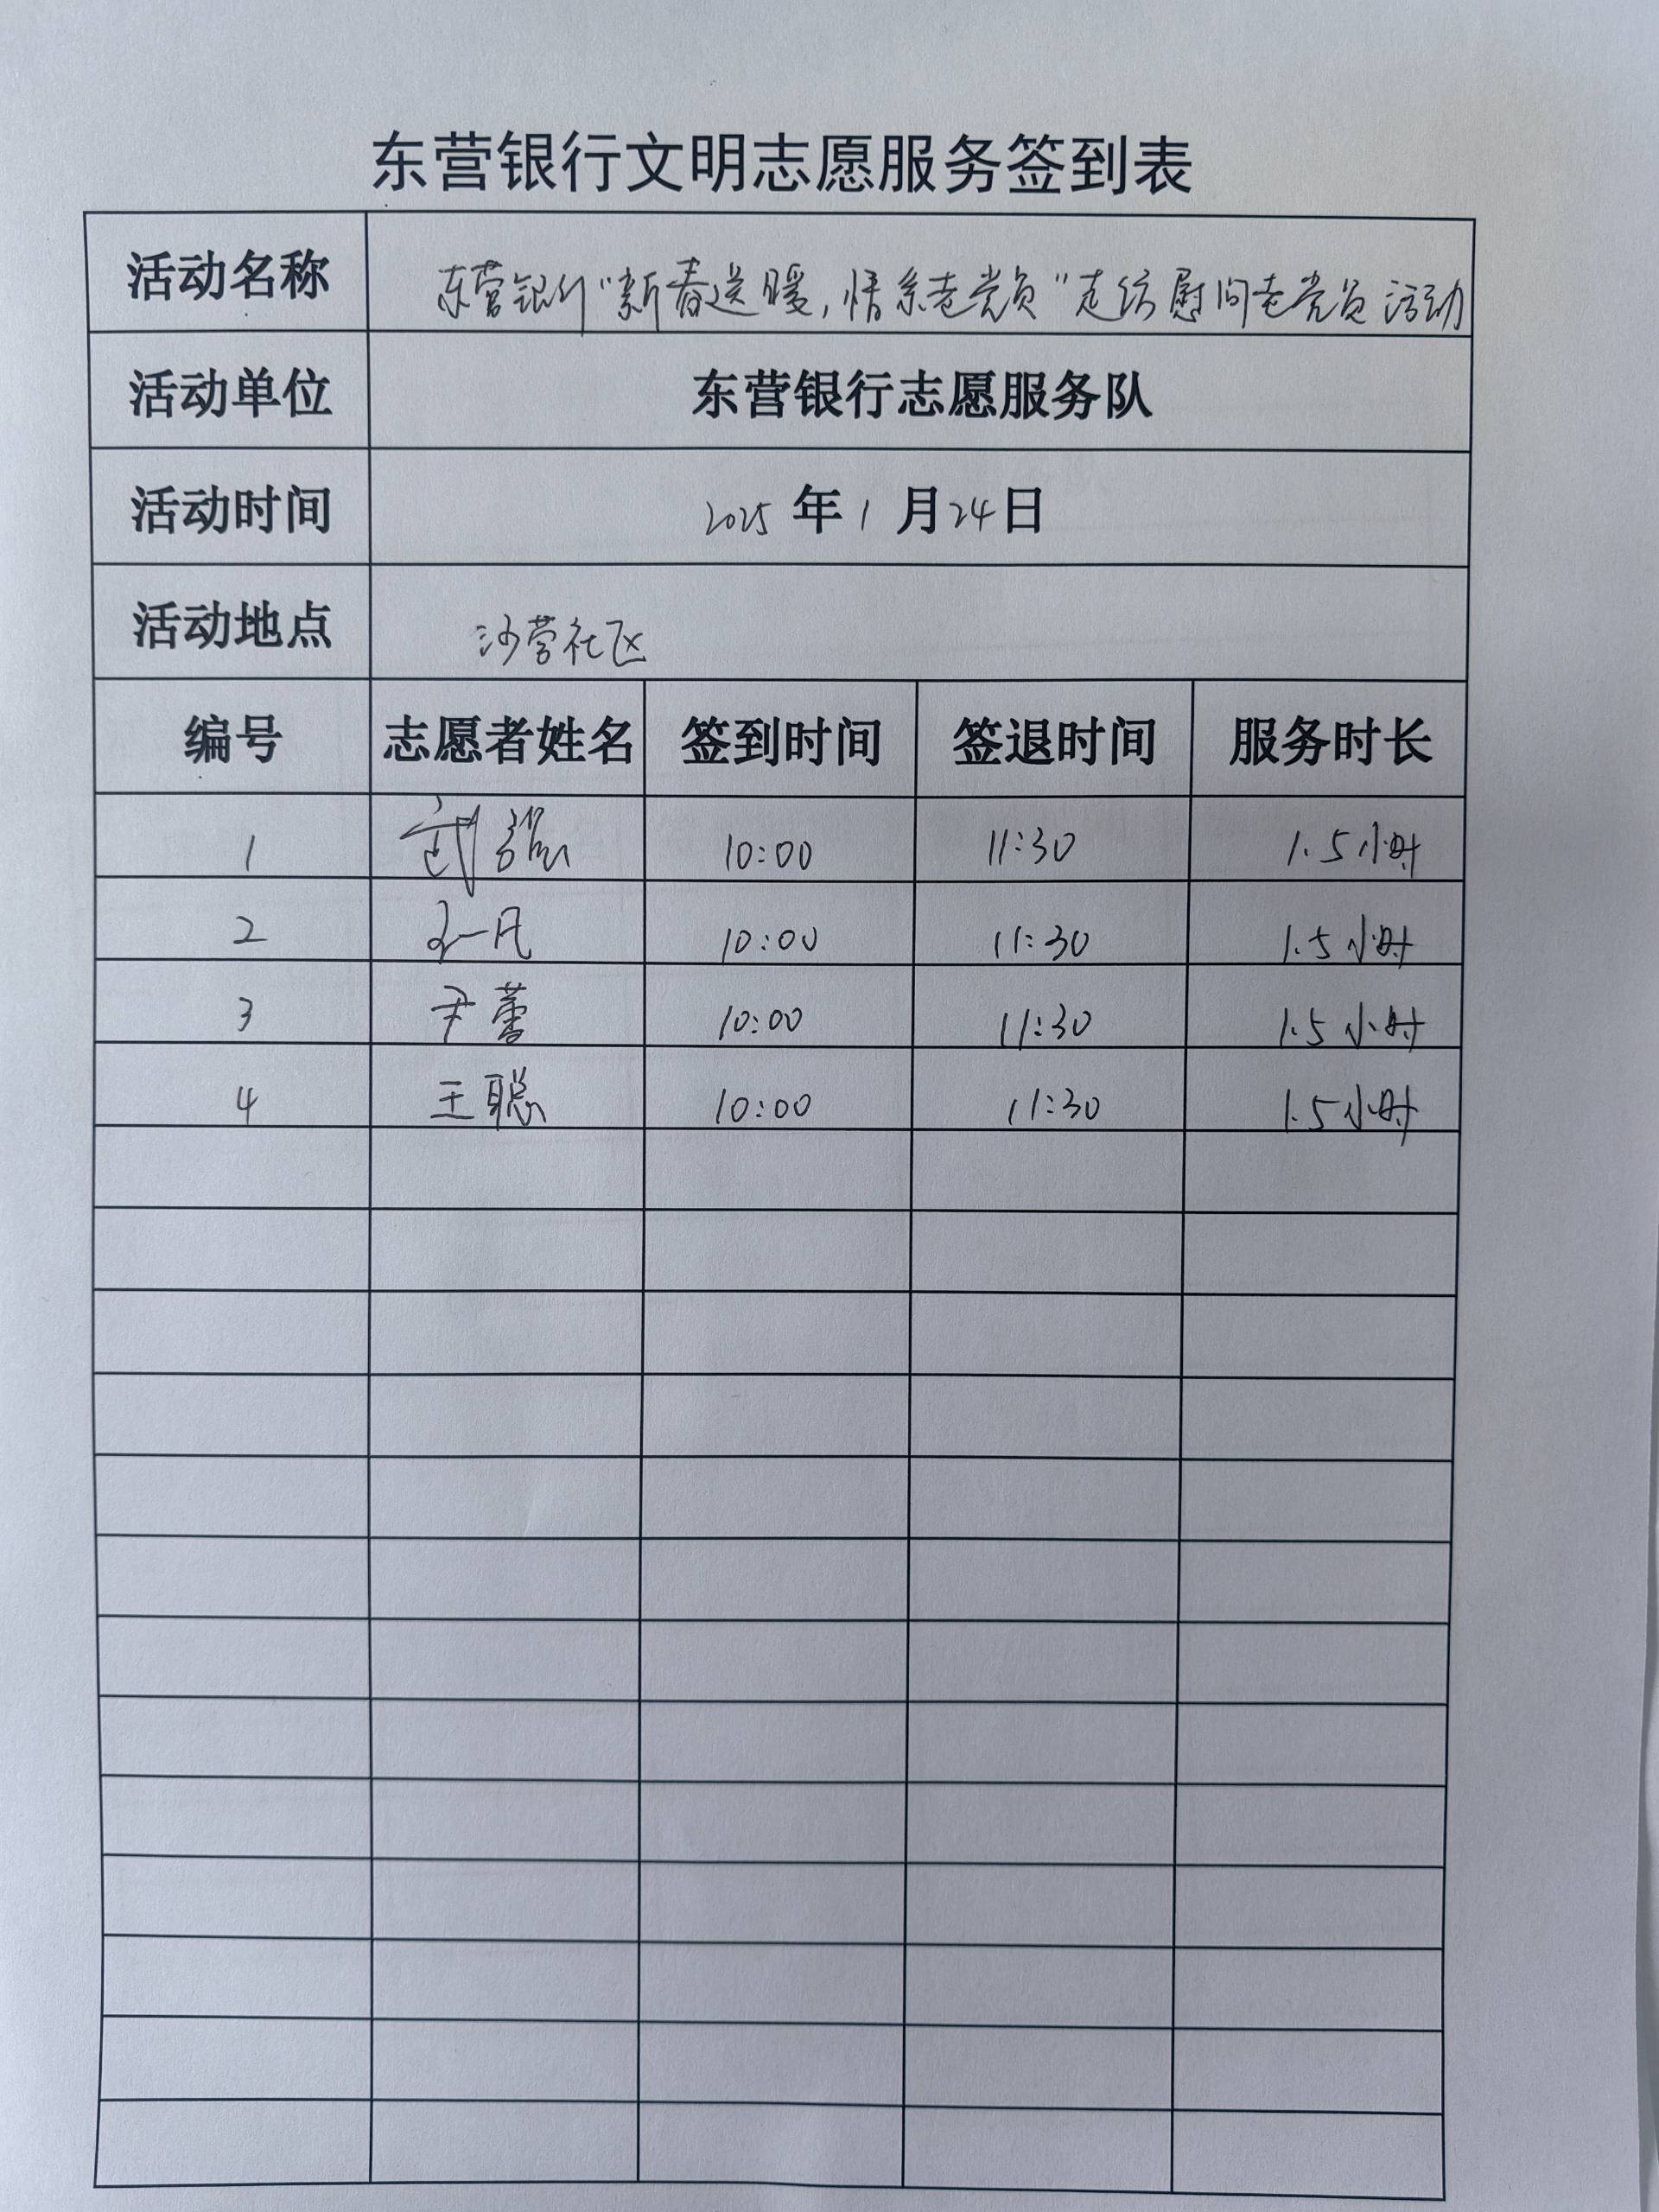 东营银行文明志愿服务签到表
活动名称 东营银行“新春送暖,情系老党员”走访慰问老党员活动
活动单位 东营银行志愿服务队
活动时间 2025年1月24日
活动地点 沙营社区
编号 志愿者姓名 签到时间 签退时间 服务时长
1 10:00 11:30 1.5小时
2 10:00 11:30 1.5小时
3 尹蕾 10:00 11:30 1.5小时
4 王聪 10:00 11:30 1.5小时